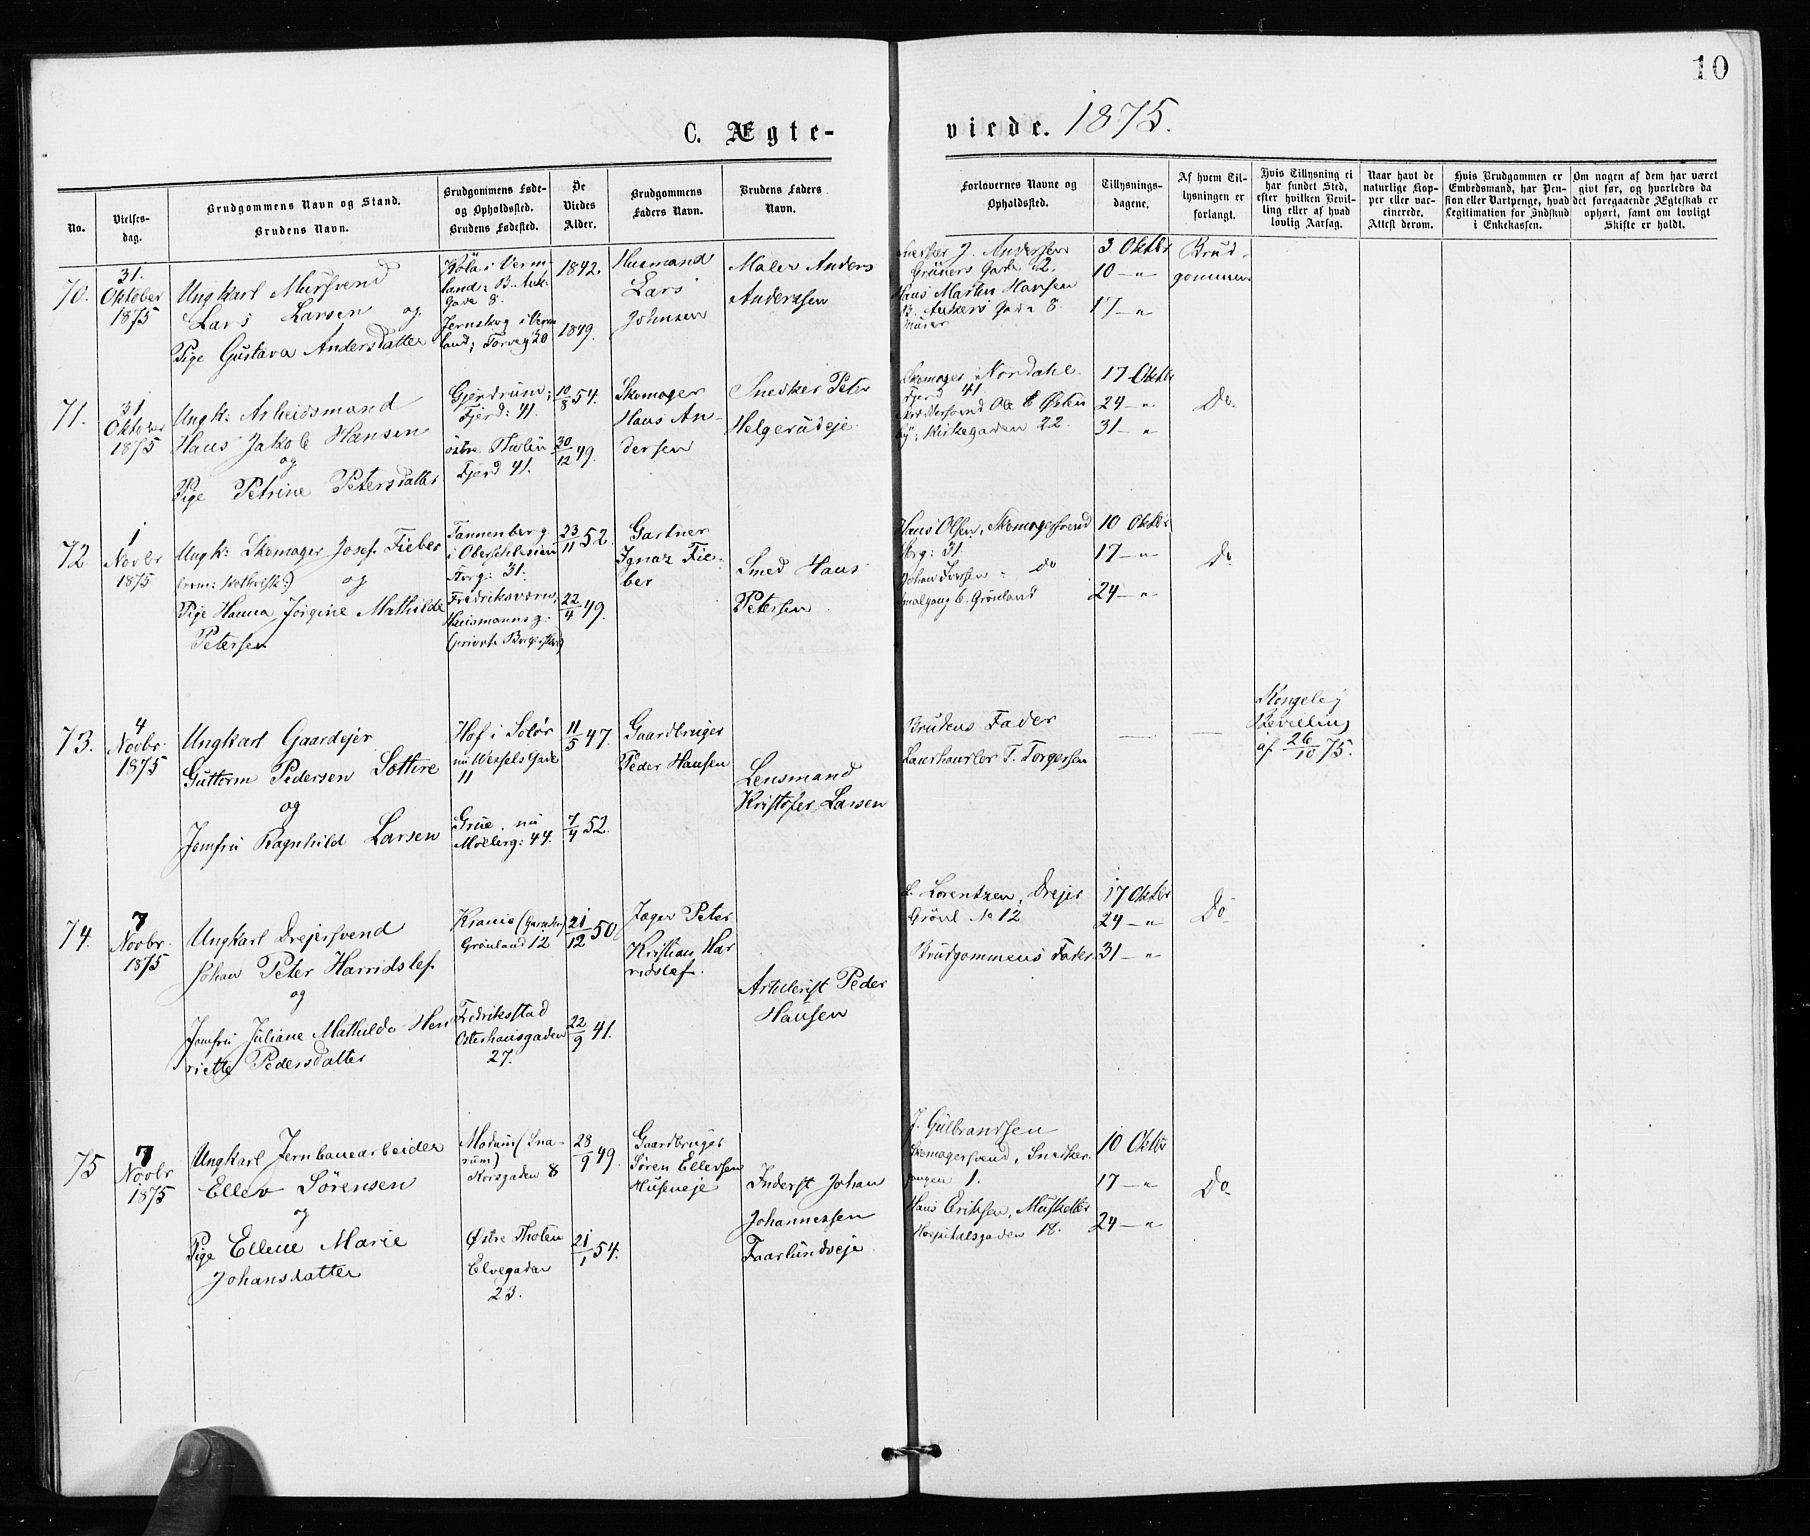 10
C. Ægte-
viede. 1875.
No.
Vielses-
dag.
Brudgommens Navn og Stand.
Brudens Navn.
Brudgommens Føde-
og Opholdssted.
Brudens Fødested.
De
Viedes
Alder.
Brudgommens
Faders Navn.
Brudens Faders
Navn.
Forlovernes Navne og
Opholdssted.
Tillysnings-
dagene.
Af hvem Til-
lysningen er
forlangt.
Hvis Tillysning ei
har fundet Sted,
efter hvilken Bevil-
ling eller af hvad
lovlig Aarsag.
Naar havt de
naturlige Kop-
per eller vac-
cinerede.
Attest derom.
Hvis Brudgommen er
Embedsmand, har Pen-
sion eller Vartpenge, hvad
Legitimation for Indskud
i Enkekassen.
Om nogen af dem har været
givt før, og hvorledes da
det foregaaende Ægteskab er
ophørt, samt om lovligt
Skifte er holdt.
70.
31.
Oktober
1875
Ungkarl Mursvend
Lars Larsen og
Pige Gustava Andersdatter
Köla i Verm-
land; B. Ank-
gade 8
Jernskog i Verm
land; Torveg 20
1842.
1849.
Husmand
Lars
Johnsen
Maler Anders
Anderssen
Snedker J. Anderssen
Grüners Gade 2.
Hans Martin Hansen
B. Ankers Gade 8.
Murer
3 Oktbr
10 — "
17 — "
Brud-
gommen
71.
31
Oktober
1875
Ungk: Arbeidsmand
Hans Jakob Hansen
og
Pige Petrine Petersdatter
Gjerdrum;
Fjerd: 41.
östre Thoten
Fjerd 41.
10/8 54.
30/12 49.
Skomager
Hans An-
dersen
Snedker Peter
Helgerudeje
Skomager Nordahl
Fjerd 41
Ole Østen
by; Kirkegaden 22.
17 Oktbr
24 — "
31 — "
Do.
72
1
Novbr
1875
Ungk: Skomager Josef Fieber
og
Pige Hanna Jörgine Mathilde
Petersen
Tannenberg
i Oberschlesien
Storg: 31.
Fredriksværn;
Huismannsg:
23/11 52.
22/4 49.
Gartner
Ignaz Fie-
ber
Smed Hans
Petersen
Hans Olsen, Skomagersvend
Storg: 31.
Johan Iversen - do
Smalgang 6. Grønland
10 Oktbr
17 — "
24 — "
Do
73.
4
Novbr.
1875
Ungkarl Gaardejer
Guttorm Pedersen Sottire
og
Jomfru Ragnhild Larsen
Hof i Solør
nu Wessels Gade
11
Grue, nu
Møllerg: 44.
11/5 47.
7/4 52.
Gaardbruger
Peder Hansen
Lensmand
Kristofer Larsen
Brudens Fader
T. Torgersen
—
—
Kongelig
Bevilling
af 26/10 75.
74.
7
Novbr.
1875
Ungkarl Drejersvend
Johan Peter Harridslef
og
Jomfru Juliane Mathilde Hen
riette Pedersdatter
Grönland 12
Fredriksstad
Osterhausgaden
27.
21/12 50.
22/9 41.
Jæger Peter
Kristian Har
ridslef.
Artillerist Peder
Hansen
L. Lorentzen, Drejer
Grönl No 12
Brudgommens Fader
17 Oktbr
24 — "
31 — "
Do
75
7
Novbr
1875
Ungkarl Jernbanearbeider
Ellev Sörensen
og
Pige Ellene Marie
Johansdatter
Modum (Sna-
rum)
Korsgaden 8
Østre Thoten
Elvegaden
23.
28/9 49.
21/1 54.
Gaardbruger
Sören Ellevsen
Huseneje
Inderst Johan
Johannessen
Faarlundseje
J. Gulbrandsen
Skomagersvend, Snedker
gangen 1.
Hans Eriksen, Musketer
Hospitalsgaden 18.
10 Oktbr
17 — "
24 — "
Do